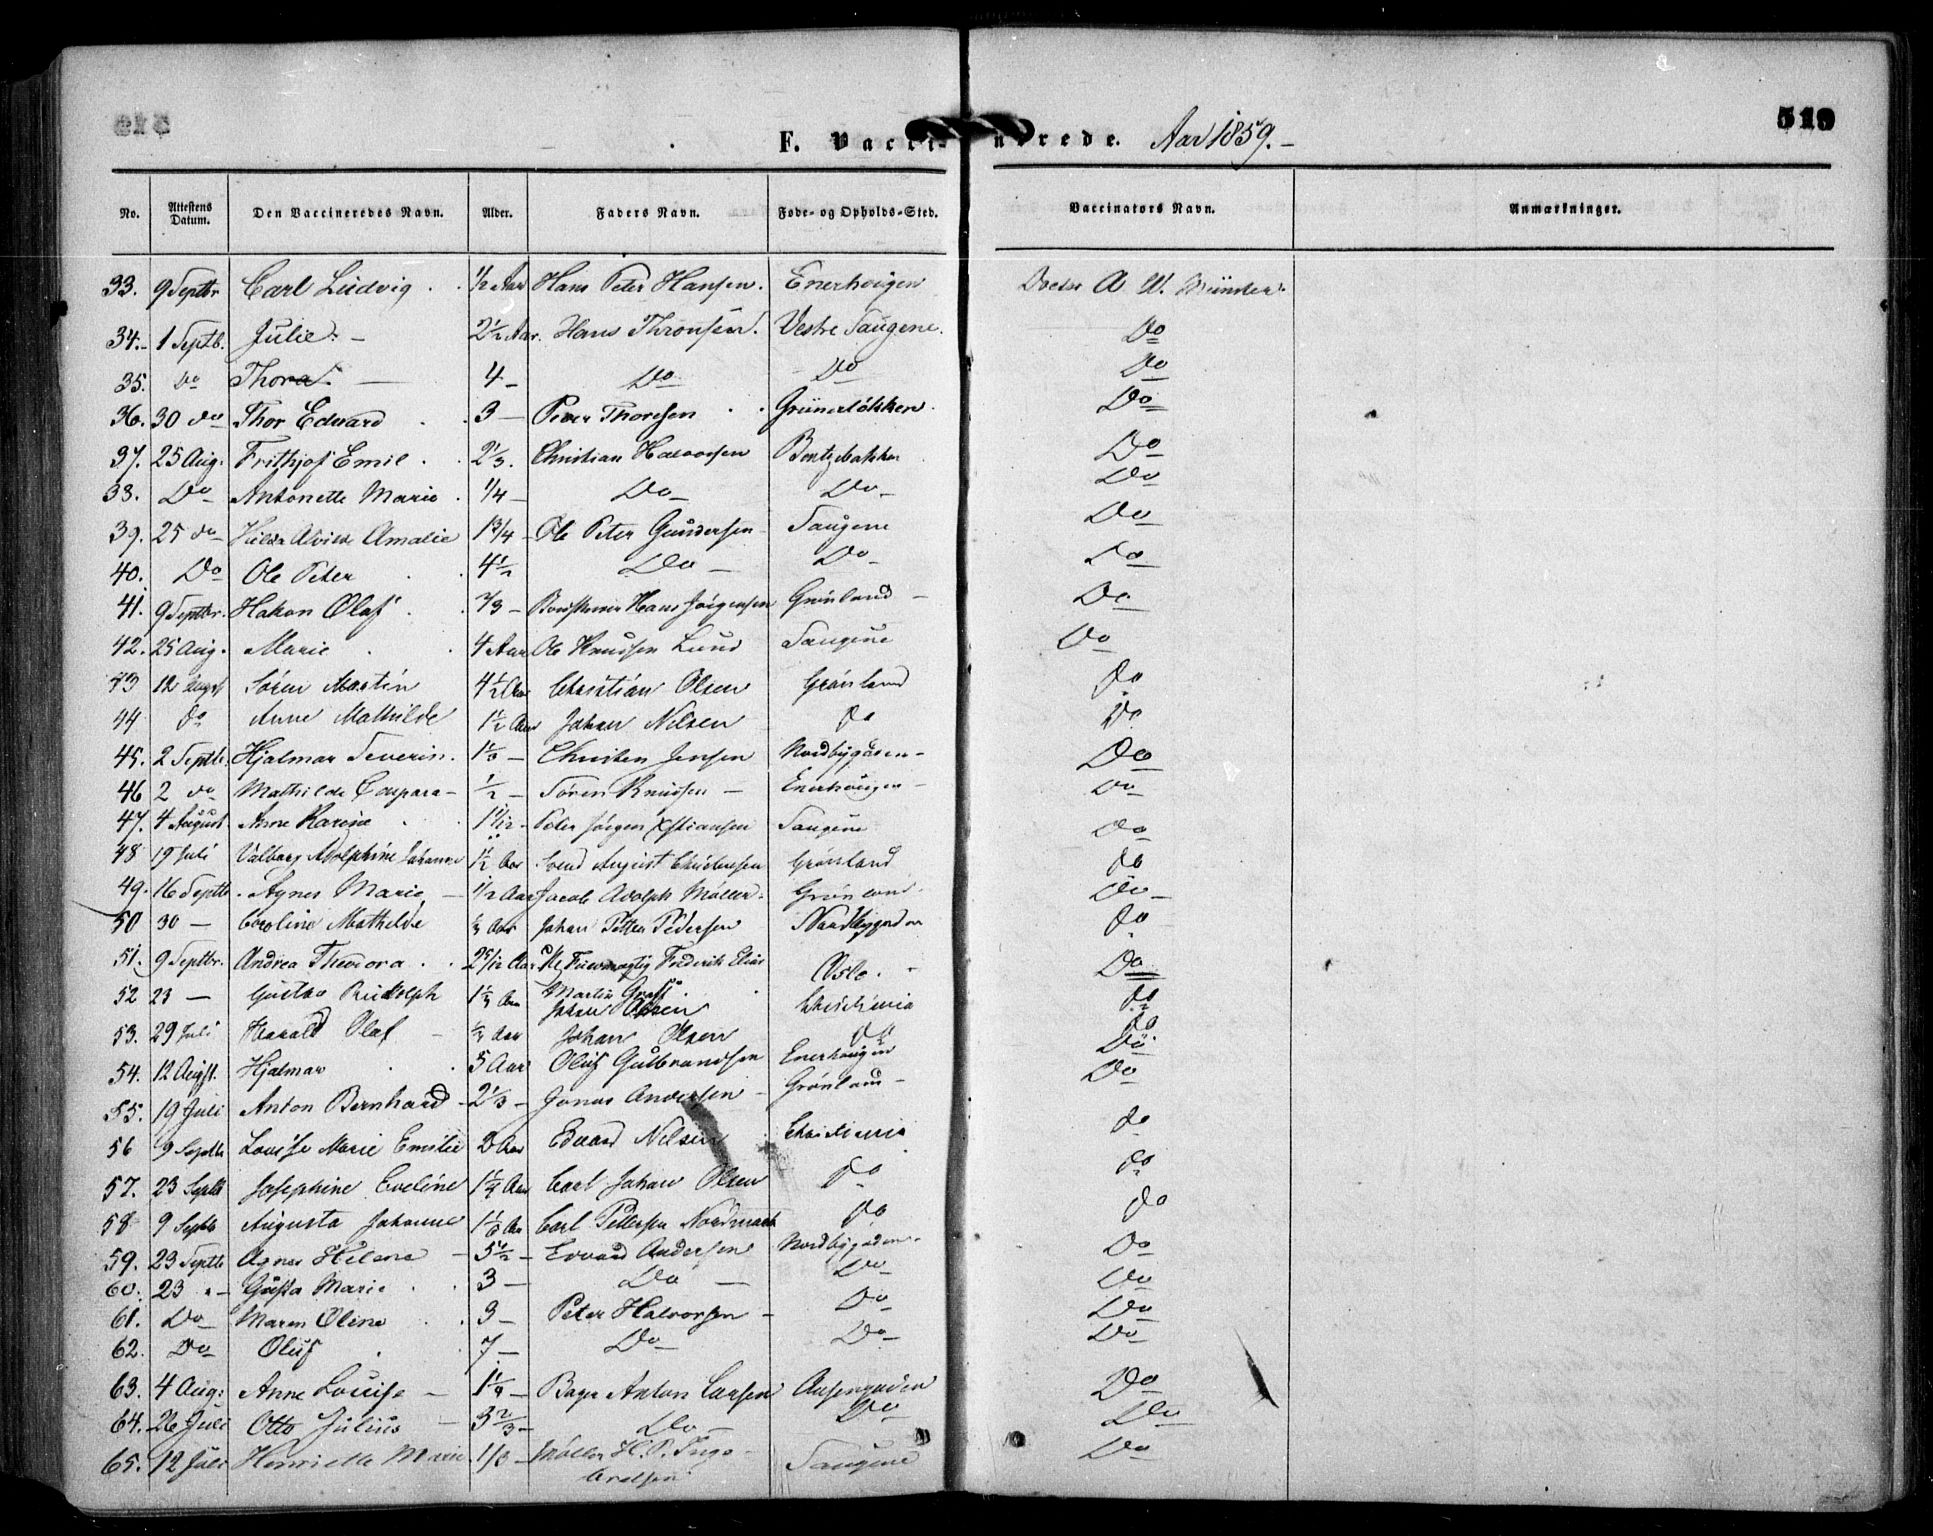 519
F. Vaccinerede. Aar 1859.-
No. Attestens Datum. Den Vaccineredes Navn. Alder. Faders Navn. Føde- og Opholds-Sted. Vaccinators Navn. Anmærkninger.
33. 9 Septbr Carl Ludvig 1/2 Aar Hans Peter Hansen. Enerhougen Doctor A. W. Münster.
34. 1 Septb. Julie. 2 1/2 Aar. Hans Thronsen. Vestre Saugene. Do
35. Do Thora. 4 - Do Do Do
36. 30 do Thor Edward 3 - Peter Thoresen Grünerløkken. Do
37. 25 Aug: Frithjof Emil 2 1/3. Christian Halvorsen Do
38. Do Antonette Marie 1/4 - Do Do Do
39. 25 do Hilda Alvilde Amalie 1 3/4 - Ole Peter Gundersen Saugene Do
40. Do Ole Peter 4 1/2 Do Do Do
41. 9 Septbr. Hakon Olaf 2/3 - Hans Jørgensen Grønland - Do
42. 25 Aug. Marie 4 Aar Ole Knudsen Lund Saugene Do
43 12 Augst Søren Martin 4 1/2 Aar Christian Olsen Grønland do
44 do Anne Mathilde 1 1/2 Aar Johan Nilsen do Do
45. 2 Septb. Hjalmar Severin. 1 1/3 - Christen Jensen Nordbygaden - Do
46 2 do Mathilde Caspara - 1/2 - Søren Knudsen - Enerhougen - Do
47. 4 August. Anne Karine 1 1/12 - Peter Jørgen Xstiansen Saugene Do
48 19 Juli Valborg Adolphine Johanne 1 1/2 Aar Svend August Christensen Grønland do
49. 16 Septb. Agnes Marie - 1/2 Aar Jacob Adolph Møller. Grønland. Do
50 30 - Caroline Mathilde Aar Johan Petter Pedersen Nordbygaden do
51. 9 Septbr. Andrea Theodora 2 5/12 Aar Frederik Elias Martin Graff Oslo. Do
52 23 - Gustav Rudolph 1 1/3 Aar Johan Olsen Christiania do
53. 29 Juli Harald Olaf - Aar Johan Olsen do do
54. 12 Augst. Hjalmar 5 Aar Oluf Gulbrandsen Enerhougen Do
55. 19 Juli Anton Bernhard 2 1/3 - Jonas Andersen - Grønland - Do
56 9 Septb Louise Marie Emilie 2 Aar Edvard Nilsen Christiania do
57. 23 Septb Josephine Eveline 1 1/4 Aar Carl Johan Olsen do do
58 9 Septb Augusta Johanne 1 1/6 Aar Carl Pettersen Nordmark do do
59. 23 Septb Agnes Helene - 5 1/2 - Edvard Andersen Nordbygaden. Do
60. 23 " - Gusta Marie 3 - Do - Do Do
61. Do Maren Oline 3 - Peter Halvorsen - Do Do
62. Do Oluf 7 - Do Do Do
63. 4 Aug: Anne Louise - 1 1/4 - Bager Anton Larsen Do
64. 26 Juli Otto Julius - 3 2/3 - Do - Do Do
65. 12 Juli Henriette Marie 1/3 - Møller H. P. Saugene Do